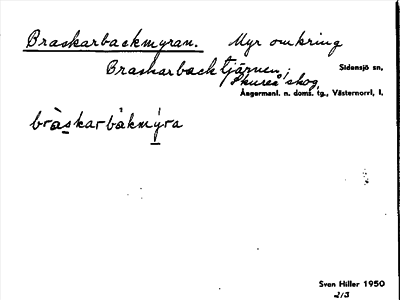 Braskarbackmyran. Myr omkring
Braskarbacktjärnen;
Skureå skog.
Sidensjö sn,
Ångermanl. n. doms. tg., Västernorrl. l.
bràskarbåkmýra
Sven Hiller 1950
2/3